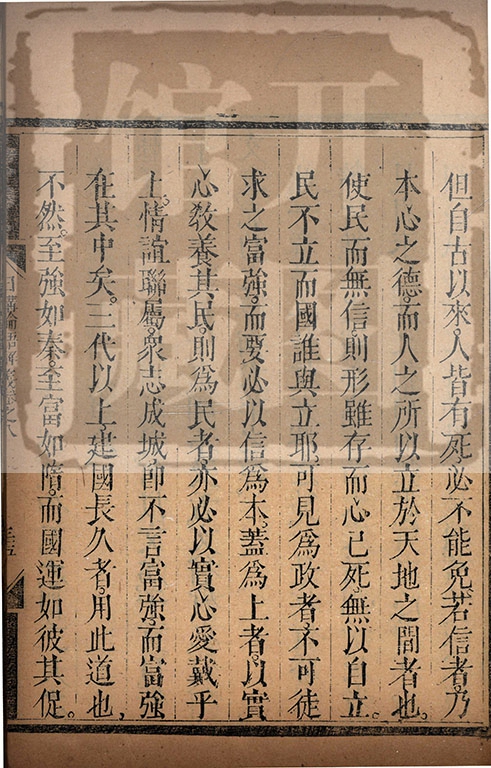 但自古以來人皆有死必不能免若信者乃
本心之德。而人之所以立於天地之間者也。
使民而無信則形雖存而心已死。無以自立。
民不立而國誰與立耶可見為政者不可徒
求之富強。而要必以信為本。蓋為上者以實
心教養其民。則為民者亦必以實心愛戴乎
上。情誼聯屬。衆志成城。即不言富強。而富強
在其中矣。三代以上建國長久者。用此道也。
不然。至強如秦。至富如隋。而國運如彼其促。